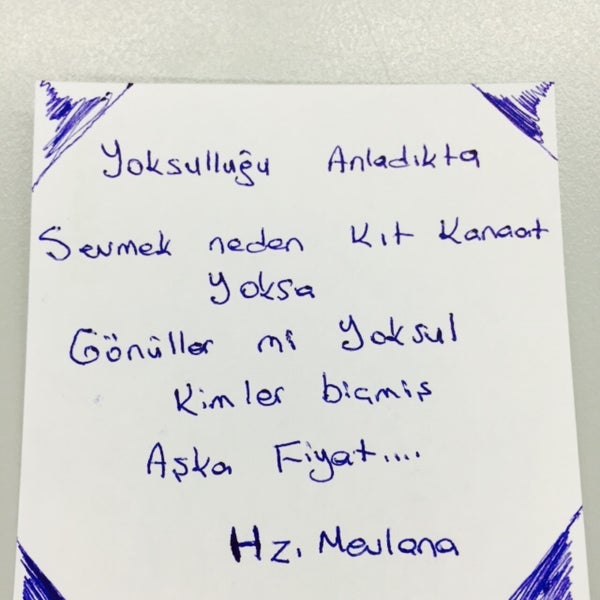 Yoksulluğu Anladıkta
Sevmek neden Kıt Kanaat
Yoksa
Gönüller mi Yoksul
Kimler biçmiş
Aşka Fiyat....
Hz. Mevlana